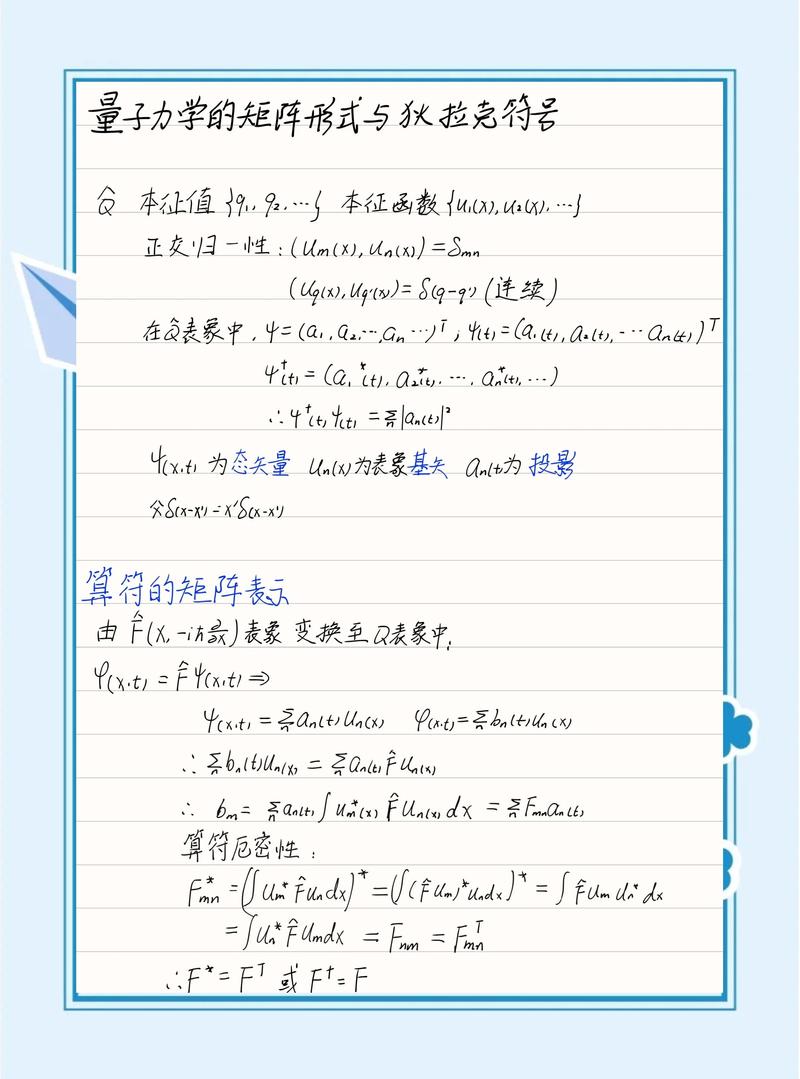 量子力学的矩阵形式与狄拉克符号
Q̂ 本征值{q₁, q₂, ⋯} 本征函数{u₁(x), u₂(x), ⋯}
正交归一性:(um(x), un(x)) = δmn
(uq(x), uq'(x)) = δ(q-q') (连续)
在Q̂表象中, ψ=(a₁, a₂, ⋯, an ⋯)ᵀ; ψ(t)=(a₁(t), a₂(t), ⋯ an(t))ᵀ
ψ†(t) = (a₁*(t), a₂*(t), ⋯, an*(t), ⋯)
∴ψ†(t)ψ(t) = Σn|an(t)|²
ψ(x,t) 为态矢量 un(x)为表象基矢 an(t)为 投影
δ(x-x') = x'δ(x-x')
算符的矩阵表示
由 F̂(x, -iħ∂/∂x)表象 变换至Q表象中:
φ(x,t) = F̂ψ(x,t) ⇒
ψ(x,t) = Σn an(t)un(x) φ(x,t)=Σn bn(t)un(x)
∴ Σn bn(t)un(x) = Σn an(t)F̂un(x)
∴ bm = Σn an(t)∫um*(x) F̂un(x)dx = Σn Fmn an(t)
算符厄密性:
Fmn* = (∫um*F̂undx)* = (∫(F̂um)*undx)* = ∫F̂um un* dx
= ∫un*F̂umdx = Fnm = Fmnᵀ
∴F* = Fᵀ 或 F† = F